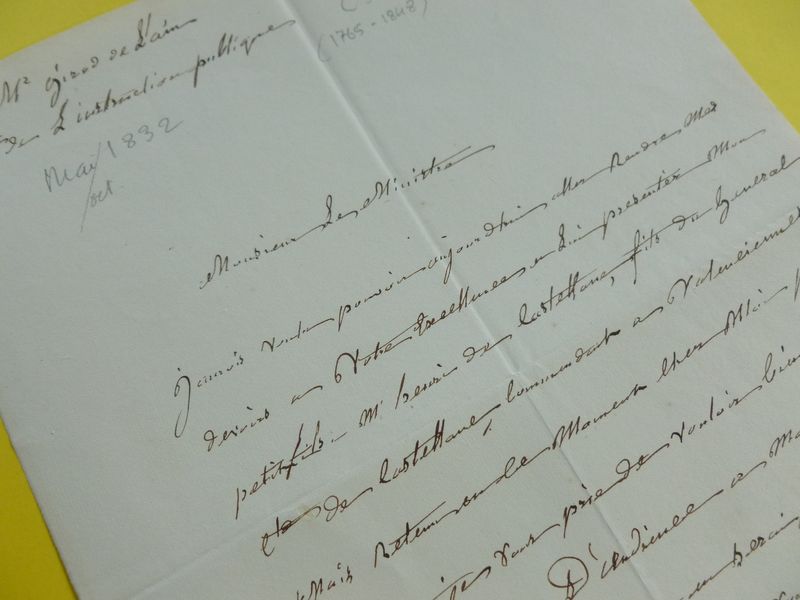 Mr Girod de L'ain
de L'instruction publique
(1765-1848)
Mai 1832
oct.
Monsieur Le Ministre
J'aurois voulu pouvoir aujourdhui aller Rendre Mes
devoirs a Votre Excellence en Lui presenter Mon
petit fils Mr henri de Castellane, fils du General
Cte de Castellane Commandant a Valenciennes
Mais Retenu en ce Moment chez Moi p
vous prie de Vouloir bien
D'audience a Mo